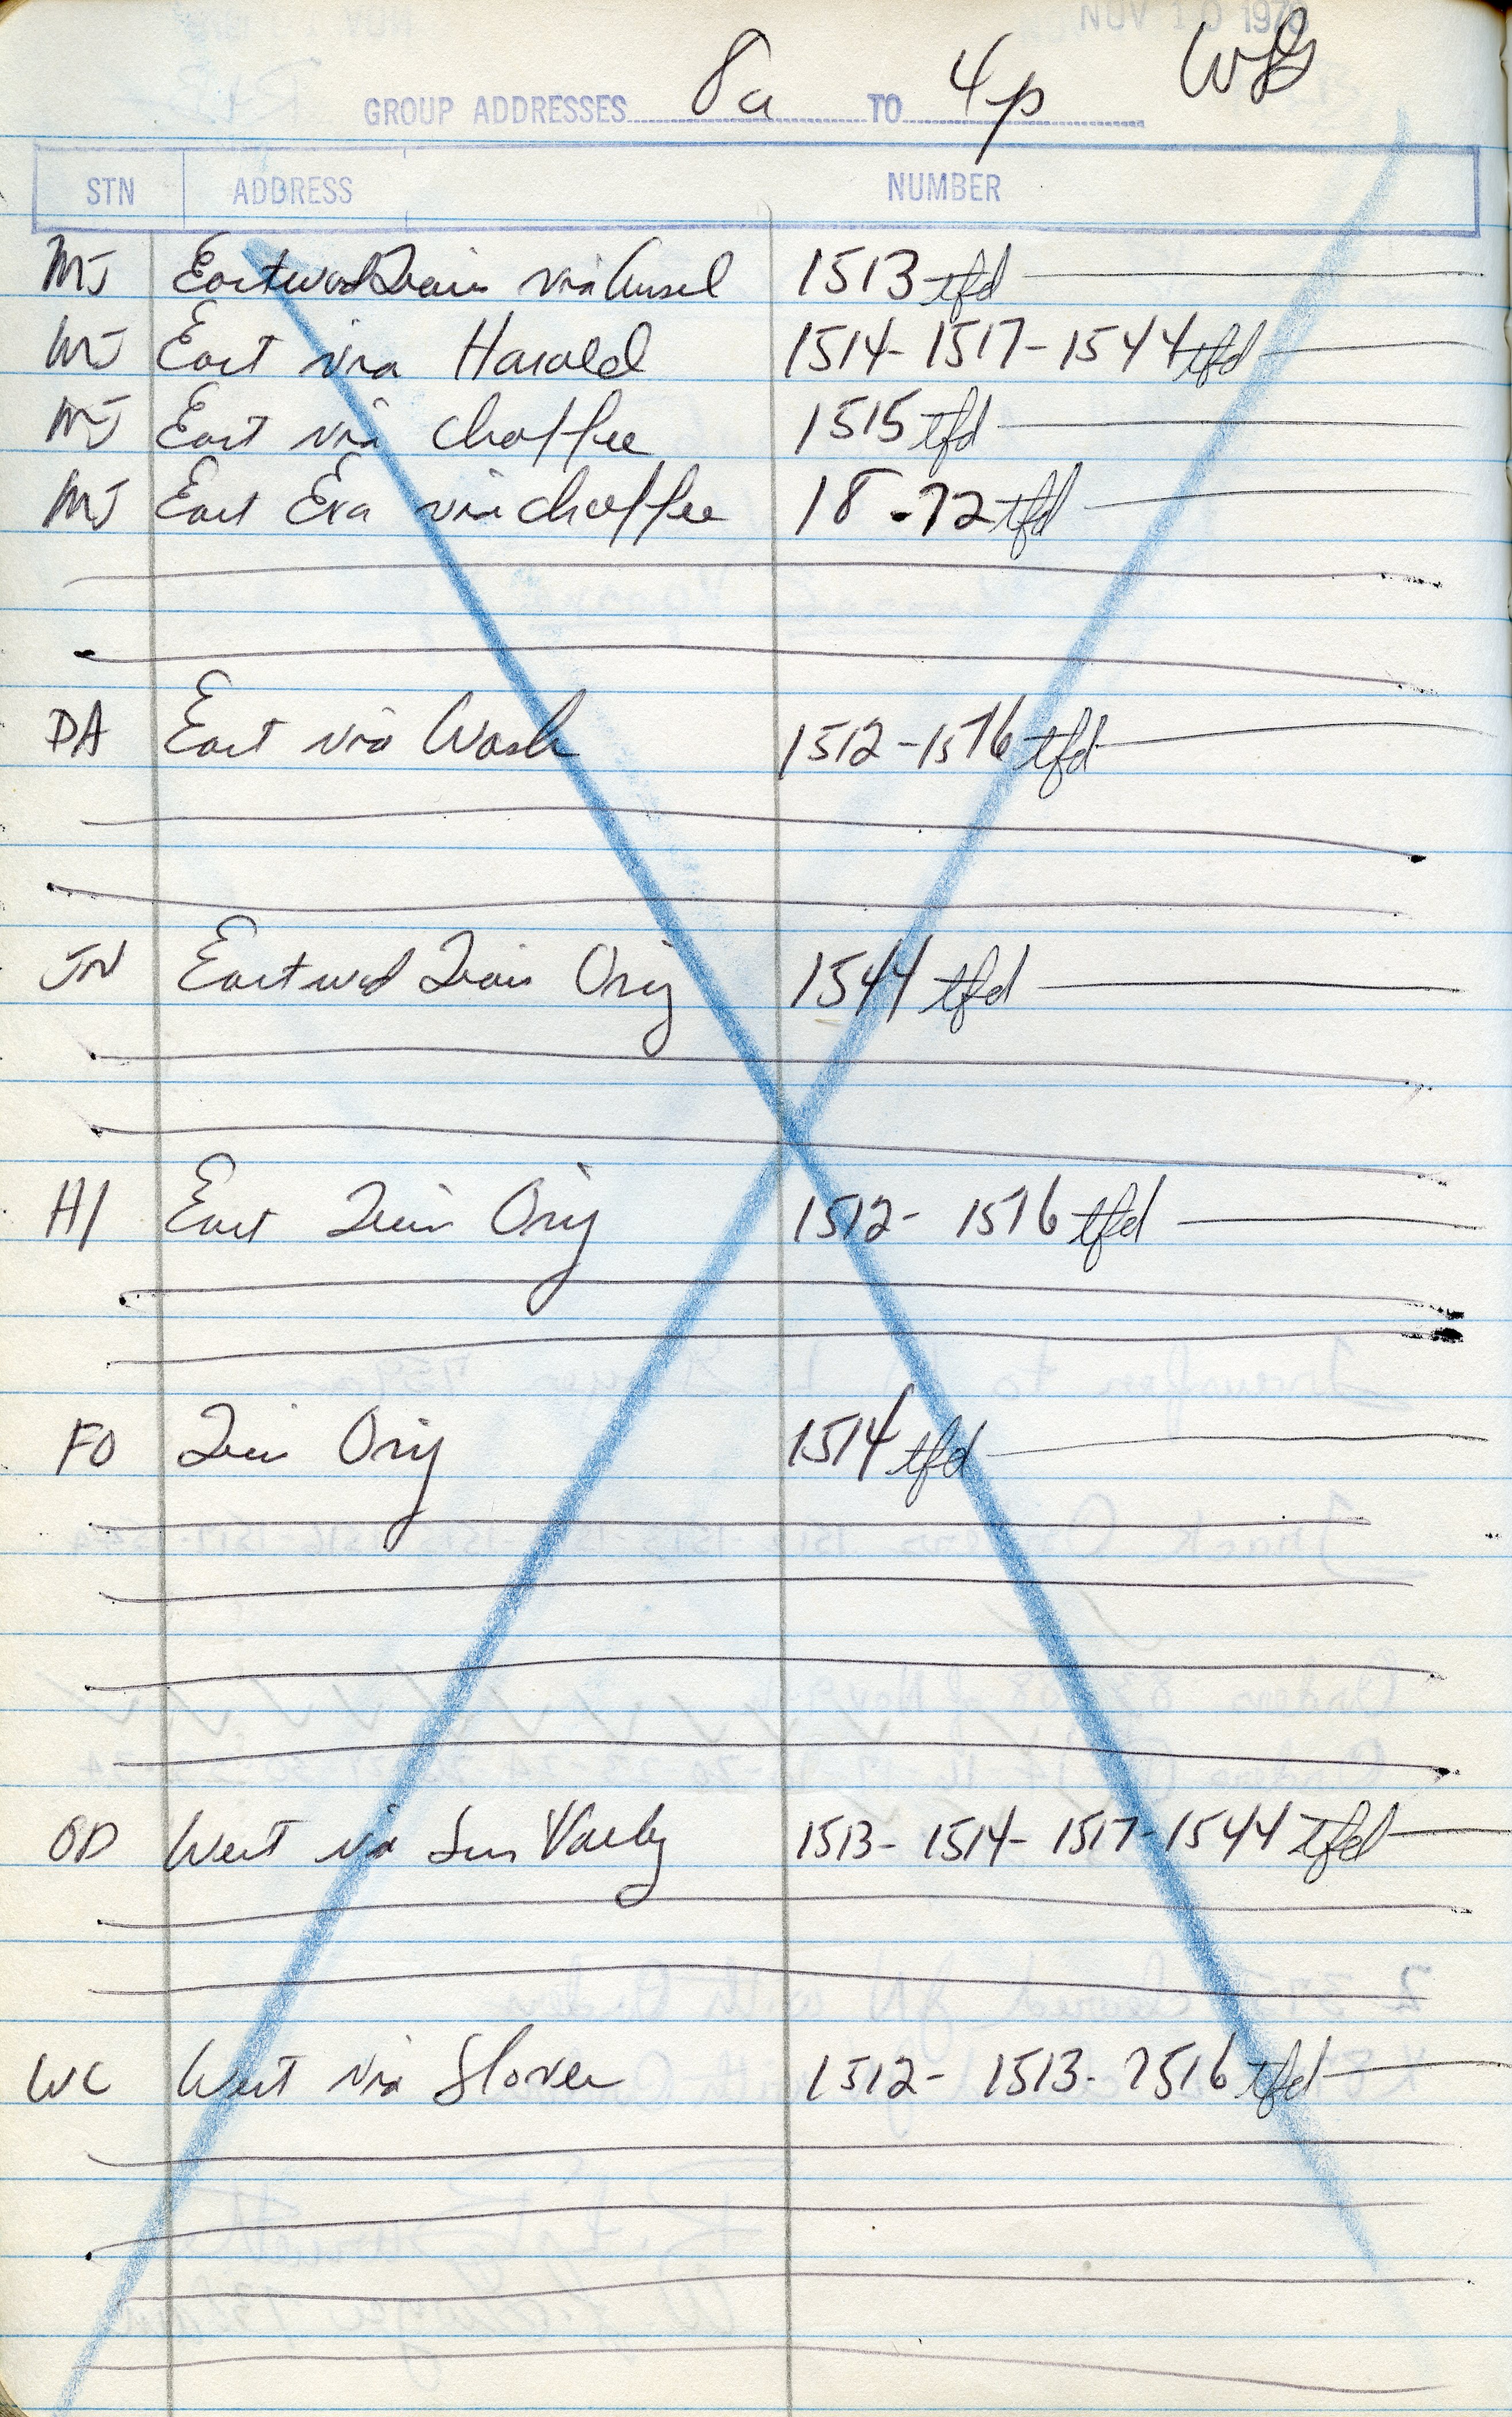 NOV 10 197
GROUP ADDRESSES 8a TO 4p WLG
STN ADDRESS NUMBER
MJ Eastwd Train via Ansel 1513 tfd
MJ East via Harold 1514-1517-1544 tfd
MJ East via Chaffee 1515 tfd
MJ East Exa via Chaffee 18-72 tfd
DA East via Wash 1512-1516 tfd
JN Eastwd Train Orig 1544 tfd
HI East Train Orig 1512-1516 tfd
FO Train Orig 1514 tfd
OD West via Sun Valley 1513-1514-1517-1544 tfd
WC West via Slover 1512-1513-1516 tfd